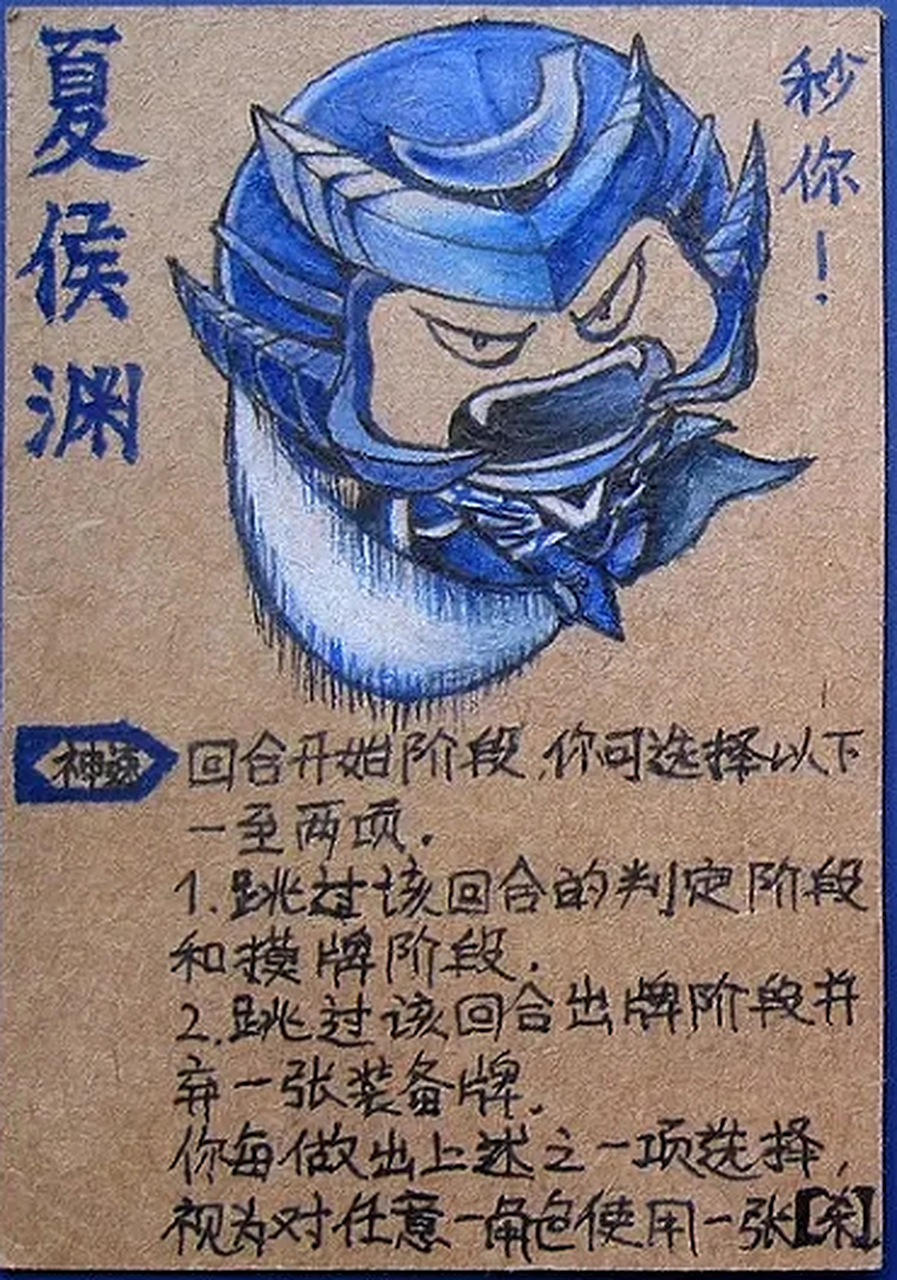 夏侯渊
秒你！
神速
回合开始阶段,你可选择以下
一至两项.
1.跳过该回合的判定阶段
和摸牌阶段.
2.跳过该回合出牌阶段并
弃一张装备牌.
你每做出上述之一项选择,
视为对任意一角色使用一张【杀】.